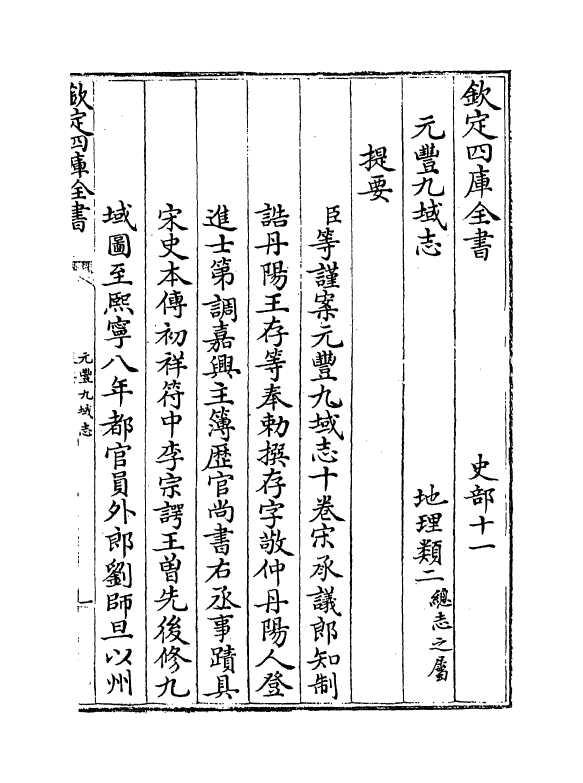 欽定四庫全書　史部十一
元豐九域志　地理類二總志之屬
提要
臣等謹案元豐九域志十卷宋承議郎知制
誥丹陽王存等奉勅撰存字敬仲丹陽人登
進士第調嘉興主簿歴官尚書右丞事蹟具
宋史本傳初祥符中李宗諤王曽先後修九
域圖至熙寧八年都官員外郎劉師旦以州
欽定四庫全書
元豐九域志